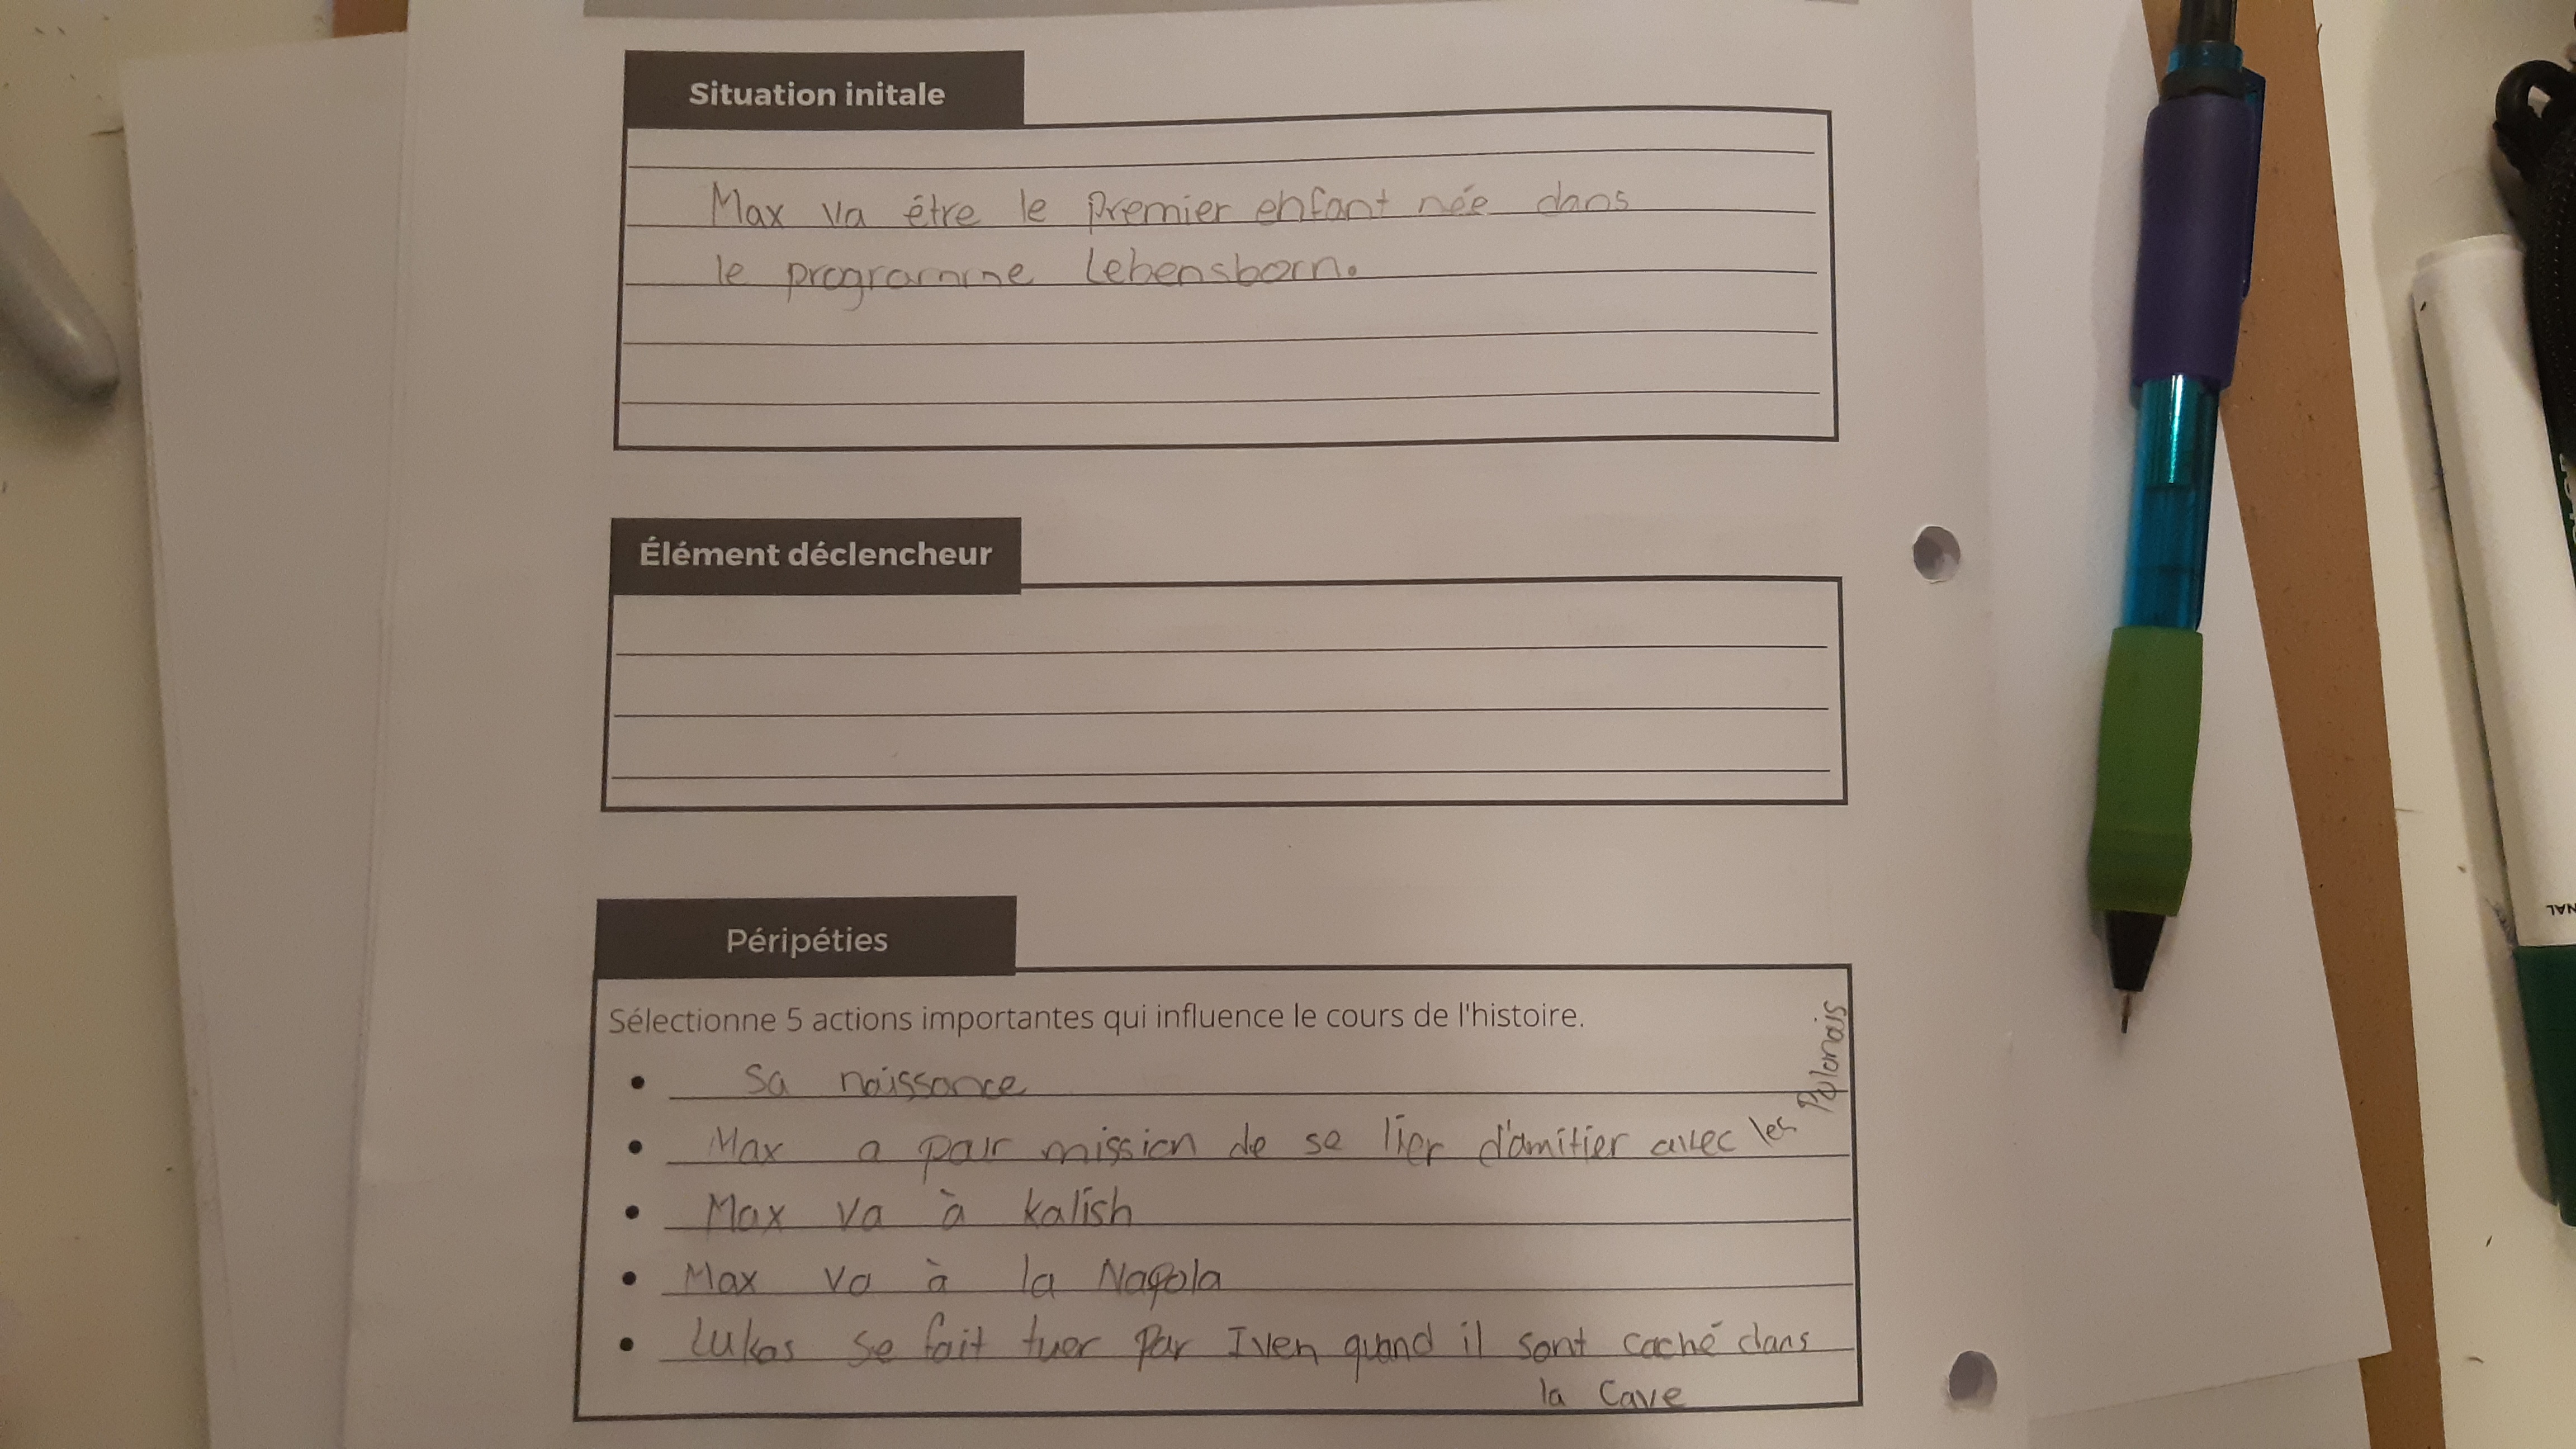 Situation initale
Max va être le premier enfant née dans
le programme Lebensborn.
Élément déclencheur
Péripéties
Sélectionne 5 actions importantes qui influence le cours de l'histoire.
• Sa naissance
• Max a pour mission de se lier d'amitier avec les Polonais
• Max va à kalish
• Max va à la Napola
• Lukas se fait tuer par Iven quand il sont caché dans
la Cave